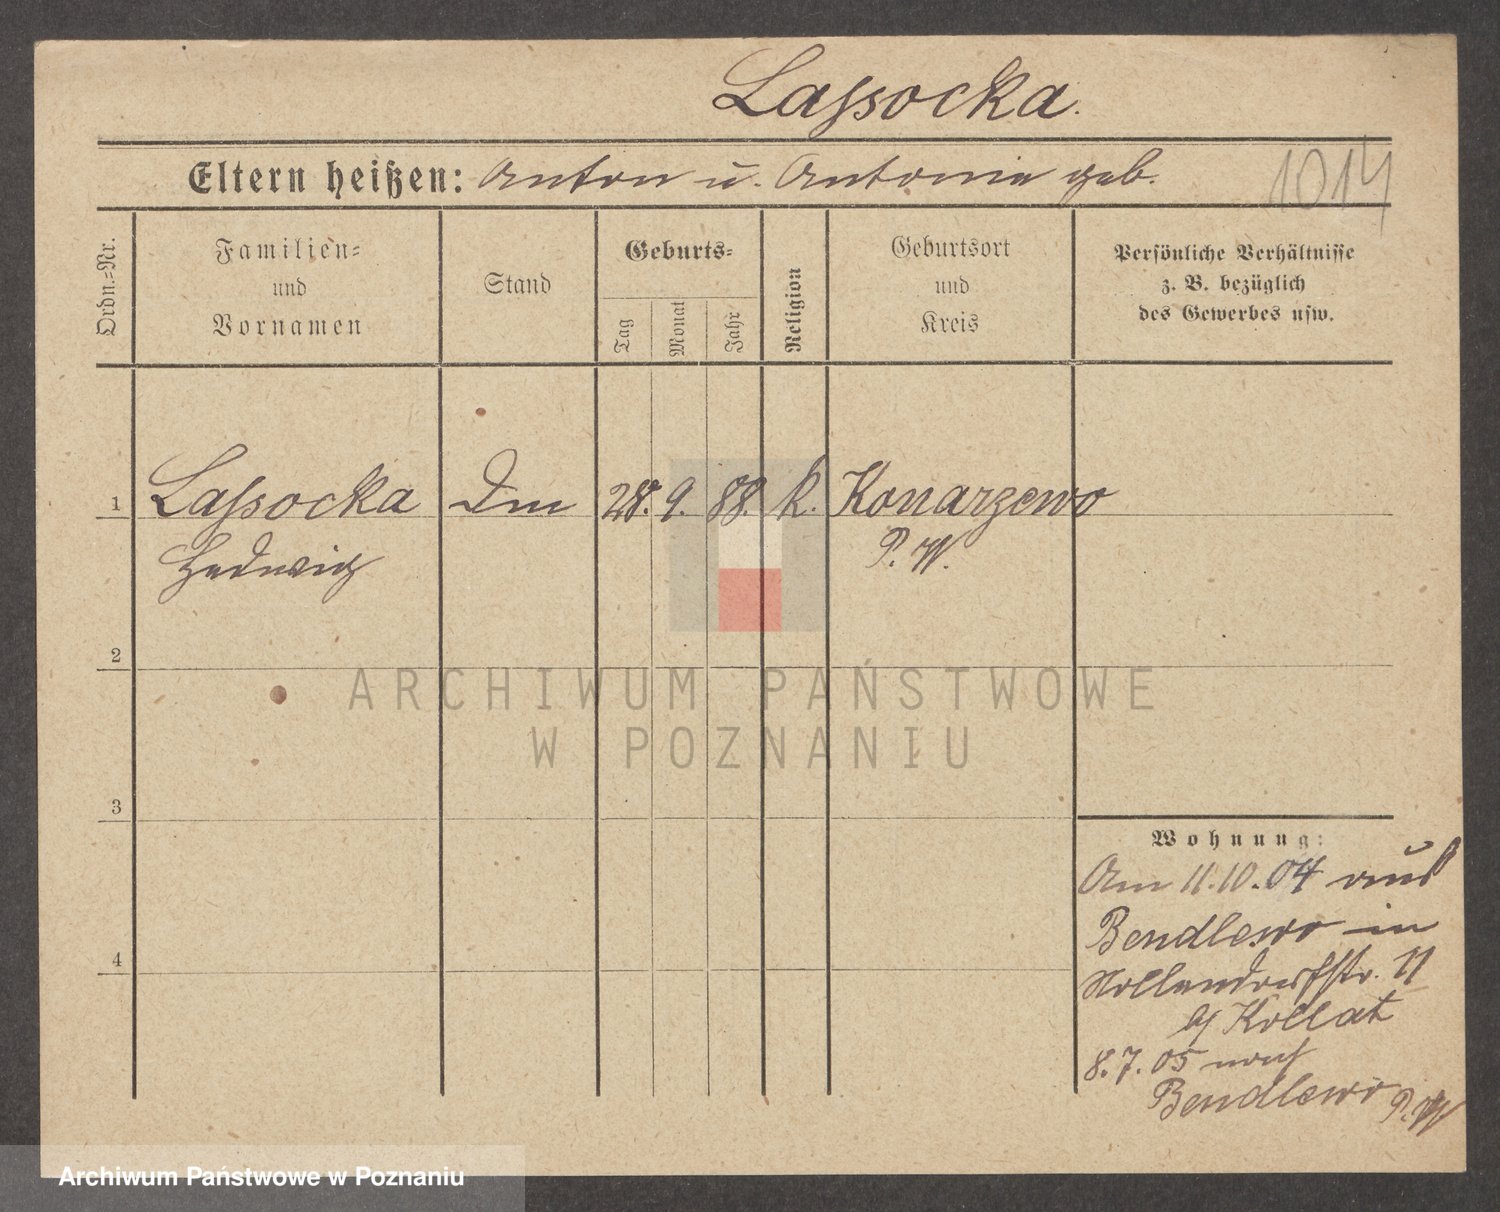 Laſsocka.
Eltern heißen: Anton u. Antonie geb.
1014
Ordn.=Nr.
Familien=
und
Vornamen
Stand
Geburts=
Tag
Monat
Jahr
Religion
Geburtsort
und
Kreis
Persönliche Verhältnisse
z. B. bezüglich
des Gewerbes usw.
1 Laſsocka Dm 28. 9. 88. k. Konarzewo
Hedwig P. W.
2
ARCHIWUM PAŃSTWOWE
W POZNANIU
3
4
Wohnung:
Am 11.10.04 aus
Bendlewo in
Hollendorfstr. 11
b/ Kollat
8.7.05 nach
Bendlewo P. W
Archiwum Państwowe w Poznaniu